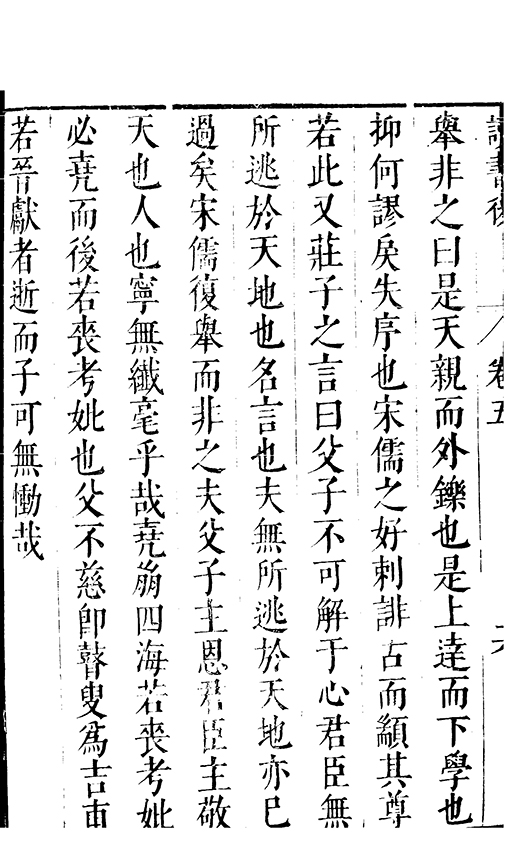 讀書後 卷五 六
舉非之曰是天親而外鑠也是上達而下學也
抑何謬戾失序也宋儒之好刺誹古而顓其尊
若此又莊子之言曰父子不可解于心君臣無
所逃於天地也名言也夫無所逃於天地亦已
過矣宋儒復舉而非之夫父子主恩君臣主敬
天也人也寧無纖毫乎哉堯崩四海若喪考妣
必堯而後若喪考妣也父不慈卽瞽叟爲吉甫
若晉獻者逝而子可無慟哉